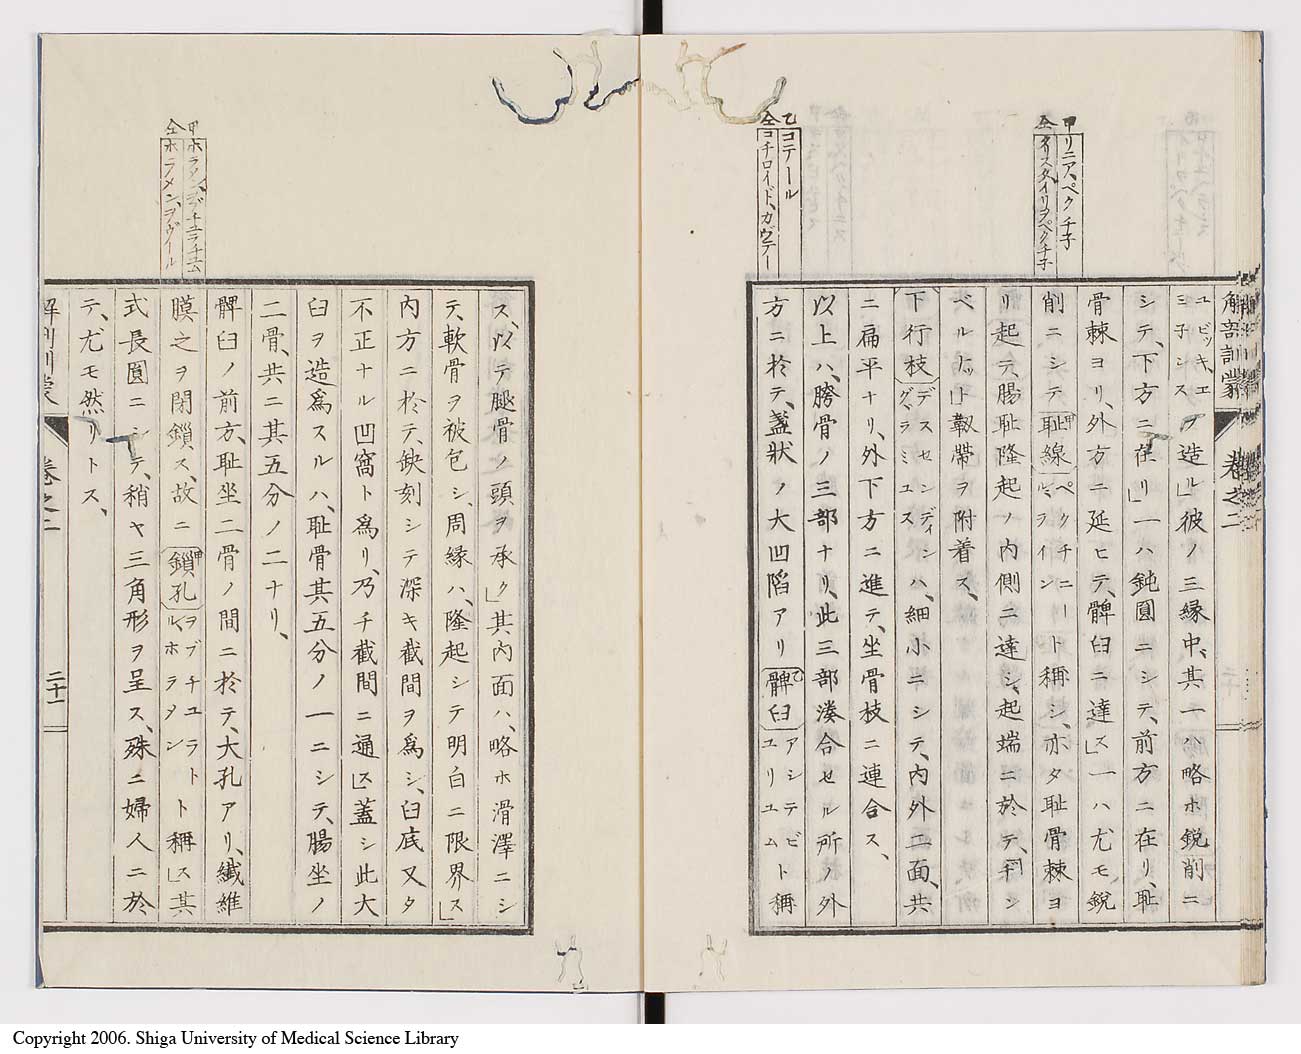 甲リニア、ペクチ子
仝クリスタイリヲペクチ子
乙コテール
仝コチロイド、カヴテー
解剖訓蒙 巻之二
ユビッキ、エ
ヨ子ンス
ヲ造ル」彼ノ三縁中、其一ハ略ホ鋭削ニ
シテ、下方ニ在リ」一ハ鈍圓ニシテ、前方ニ在リ、耻
骨棘ヨリ、外方ニ延ヒテ、髀臼ニ達ス」一ハ尤モ鋭
削ニシテ耻線甲ペクチニートルミライント稱シ、亦タ耻骨棘ヨ
リ起テ、腸耻隆起ノ内側ニ達シ、起端ニ於テ、
ベルナット」靱帶ヲ附着ス、
下行枝デスセンディングラミユスハ、細小ニシテ、内外二面、共
ニ扁平ナリ、外下方ニ進テ、坐骨枝ニ連合ス、
以上ハ、胯骨ノ三部ナリ、此三部湊合セル所ノ外
方ニ於テ、盞狀ノ大凹陷アリ髀臼乙アシテビユリユムト稱
甲ホラメンヲブチュラチュム
仝ホラメン、ヲヴイール
ス、以テ腿骨ノ頭ヲ承ク」其内面ハ、略ホ滑澤ニシ
テ、軟骨ヲ被包シ、周緣ハ、隆起シテ明白ニ限界ス」
内方ニ於テ、缺刻シテ深キ截間ヲ爲シ、臼底又タ
不正ナル凹窩ト爲リ、乃チ截間ニ通ス」蓋シ此大
臼ヲ造爲スルハ、耻骨其五分ノ一ニシテ、腸坐ノ
二骨、共ニ其五分ノ二ナリ、
髀臼ノ前方、耻坐二骨ノ間ニ於テ、大孔アリ、纎維
膜之ヲ閉鎖ス、故ニ鎖孔甲ヲブチユラトルホラメント稱ス」其
式長圓ニシテ、稍ヤ三角形ヲ呈ス、殊ニ婦人ニ於
テ、尤モ然リトス、
解剖訓蒙 巻之二 二十一
Copyright 2006. Shiga University of Medical Science Library